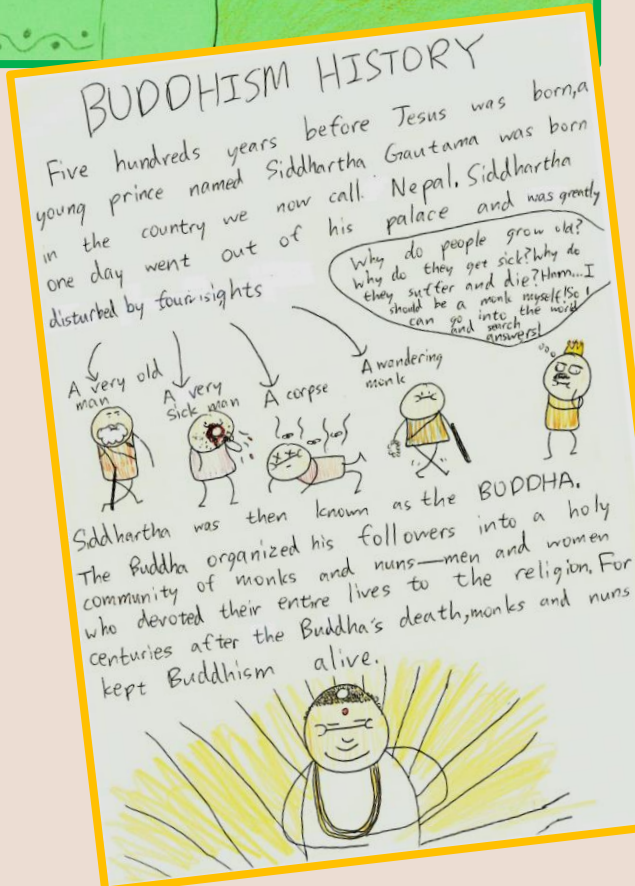 BUDDHISM HISTORY
Five hundreds years before Jesus was born,a
young prince named Siddhartha Gautama was born
in the country we now call Nepal. Siddhartha
one day went out of his palace and was greatly
disturbed by four sights
Why do people grow old?
Why do they get sick? Why do
they suffer and die? Hmm...I
should be a monk myself! So I
can go into the world
and search
answers!
A very old
man
A very
sick man
A corpse
A wandering
monk
Siddhartha was then known as the BUDDHA.
The Buddha organized his followers into a holy
community of monks and nuns—men and women
who devoted their entire lives to the religion. For
centuries after the Buddha's death,monks and nuns
kept Buddhism alive.